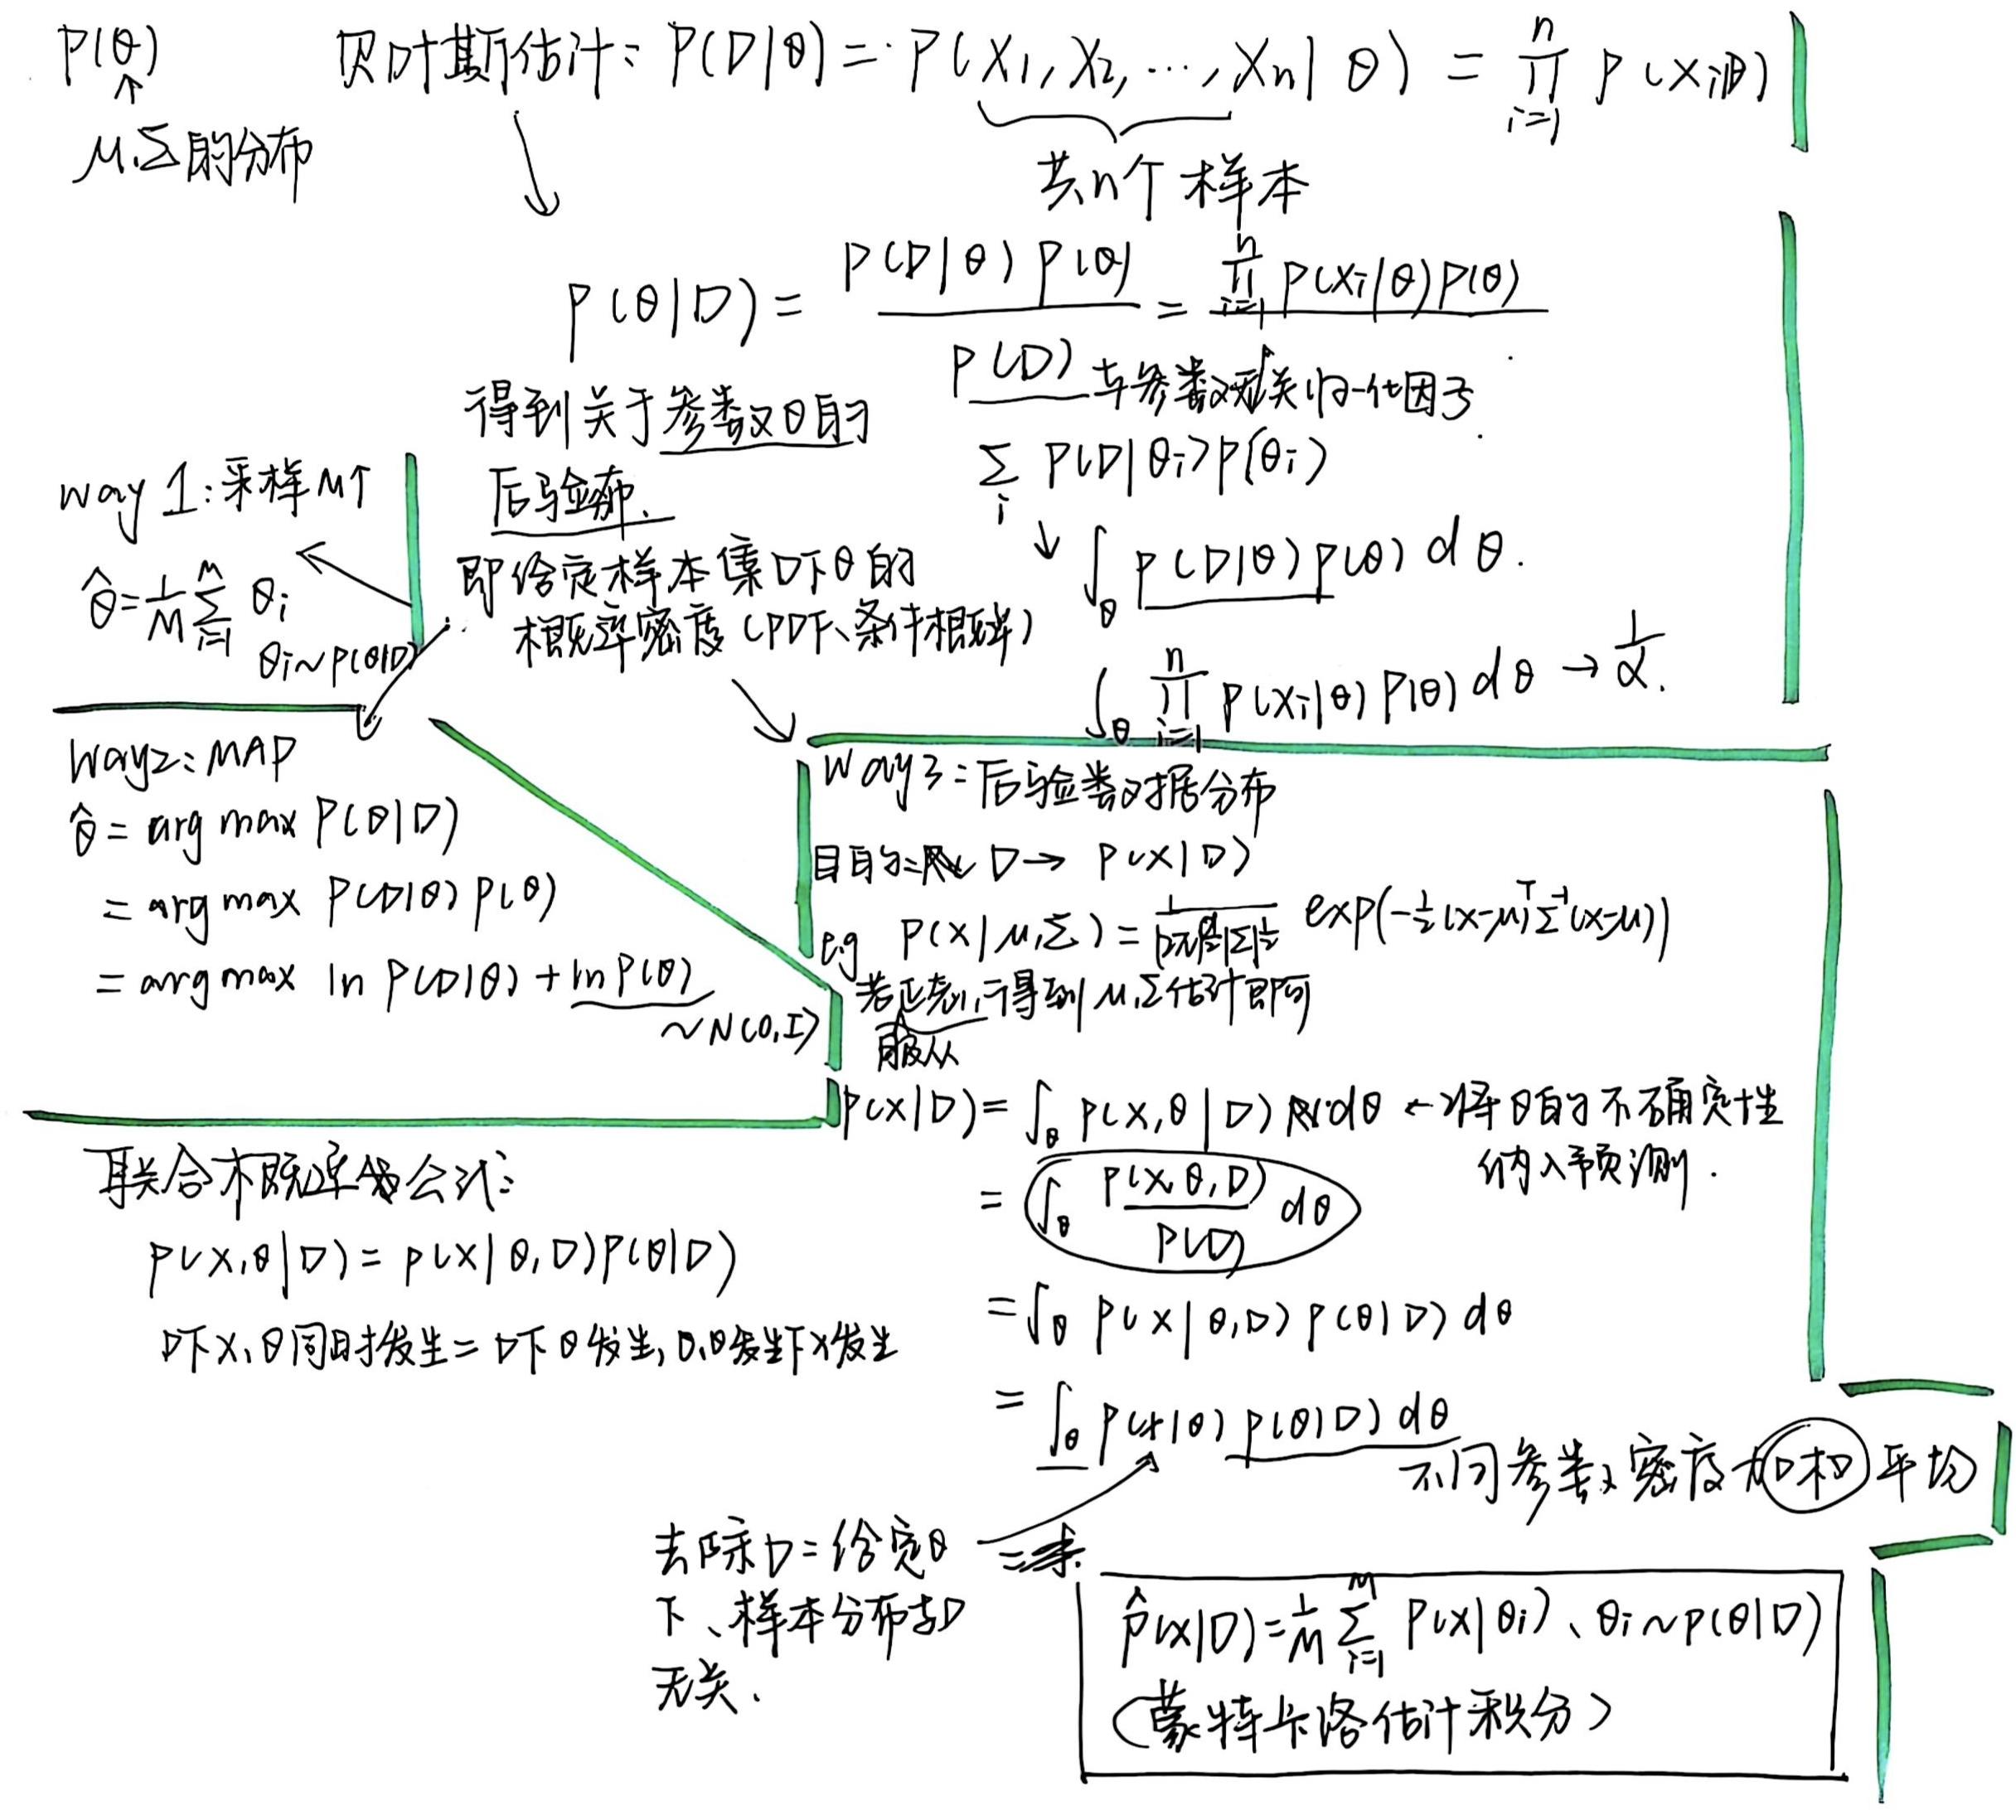 P(θ)
↑
μ、Σ的分布
贝叶斯估计: P(D|θ) = P(X1, X2, ..., Xn | θ) = ∏_{i=1}^{n} P(Xi|θ)
共n个样本
P(θ|D) = P(D|θ)P(θ) / P(D) = ∏_{i=1}^{n} P(Xi|θ)P(θ)
与参数无关归一化因子.
Σ_i P(D|θi)P(θi)
↓ ∫_θ P(D|θ)P(θ) dθ.
∫_θ ∏_{i=1}^{n} P(Xi|θ) P(θ) dθ → 1/α.
得到关于参数θ的
后验分布.
即给定样本集D下θ的
概率密度 (PDF、条件概率)
way 1: 采样M个
θ̂ = 1/M Σ_{i=1}^{M} θi
θi ~ P(θ|D)
Way2: MAP
θ̂ = arg max P(θ|D)
= arg max P(D|θ) P(θ)
= arg max ln P(D|θ) + ln P(θ)
~ N(0, I)
Way3: 后验数据分布
目的: D → P(X|D)
eg P(X|μ,Σ) = 1/((2π)^{d/2}|Σ|^{1/2}) exp(-1/2 (x-μ)^T Σ^{-1} (x-μ))
若正态, 得到μ,Σ估计即可
服从
P(X|D) = ∫_θ P(X,θ|D) dθ ← 将θ的不确定性
纳入预测.
= ∫_θ P(X,θ,D)/P(D) dθ
= ∫_θ P(X|θ,D) P(θ|D) dθ
= ∫_θ P(X|θ) P(θ|D) dθ
不同参数密度加权平均
联合概率公式:
P(X,θ|D) = P(X|θ,D)P(θ|D)
D下X、θ同时发生 = D下θ发生, D、θ发生下X发生
去除D = 给定θ
下、样本分布与D
无关.
p̂(X|D) = 1/M Σ_{i=1}^{M} P(X|θi)、θi ~ P(θ|D)
(蒙特卡洛估计积分)